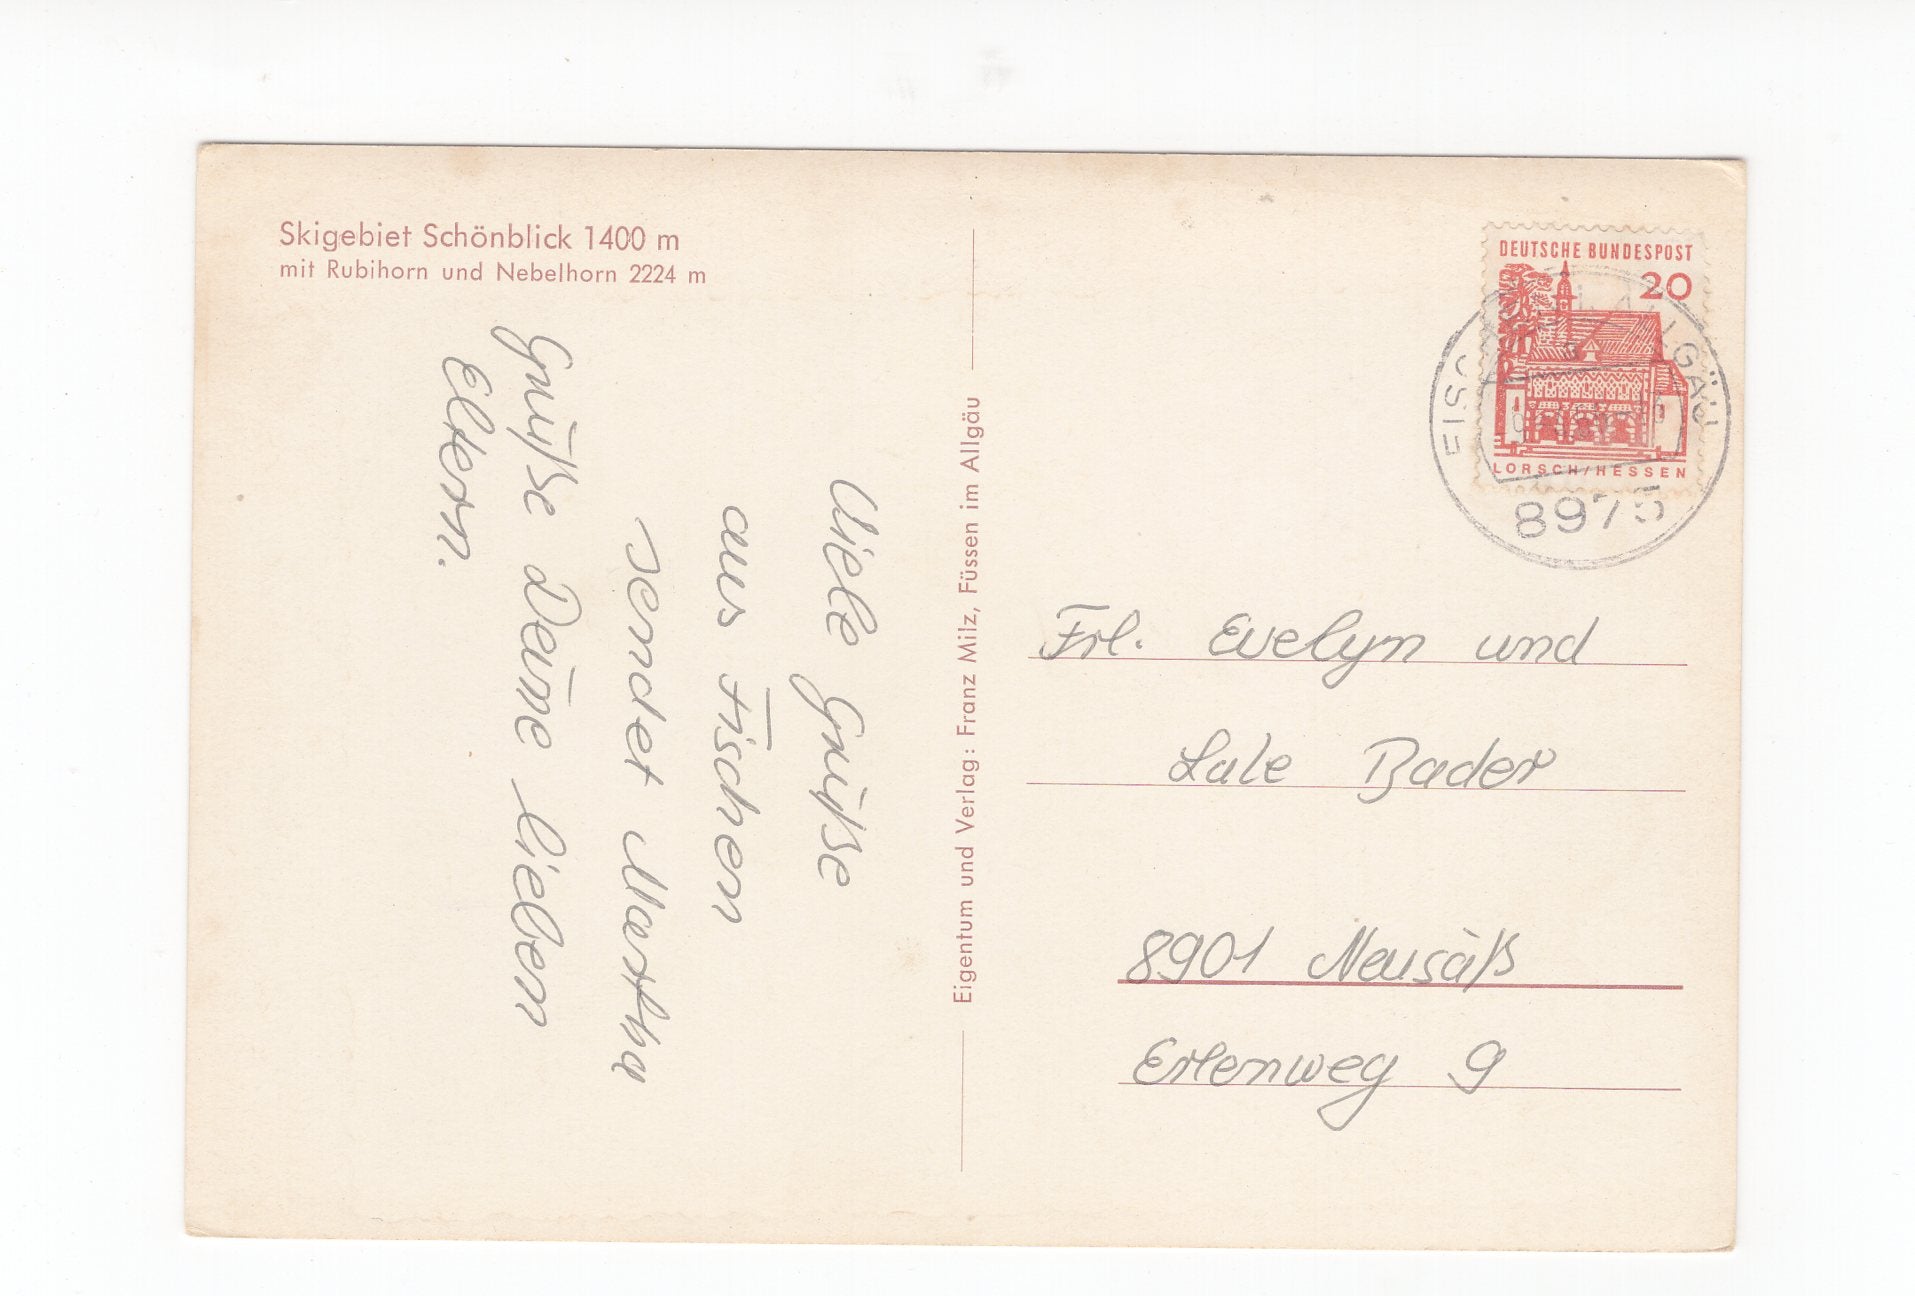 Skigebiet Schönblick 1400 m
mit Rubihorn und Nebelhorn 2224 m
Viele Grüße
aus Fischen
sendet Martha
Grüße Deine lieben
Eltern.
Eigentum und Verlag: Franz Milz, Füssen im Allgäu
DEUTSCHE BUNDESPOST
20
LORSCH/HESSEN
8975
Frl. Evelyn und
Lale Bader
8901 Neusäß
Erlenweg 9